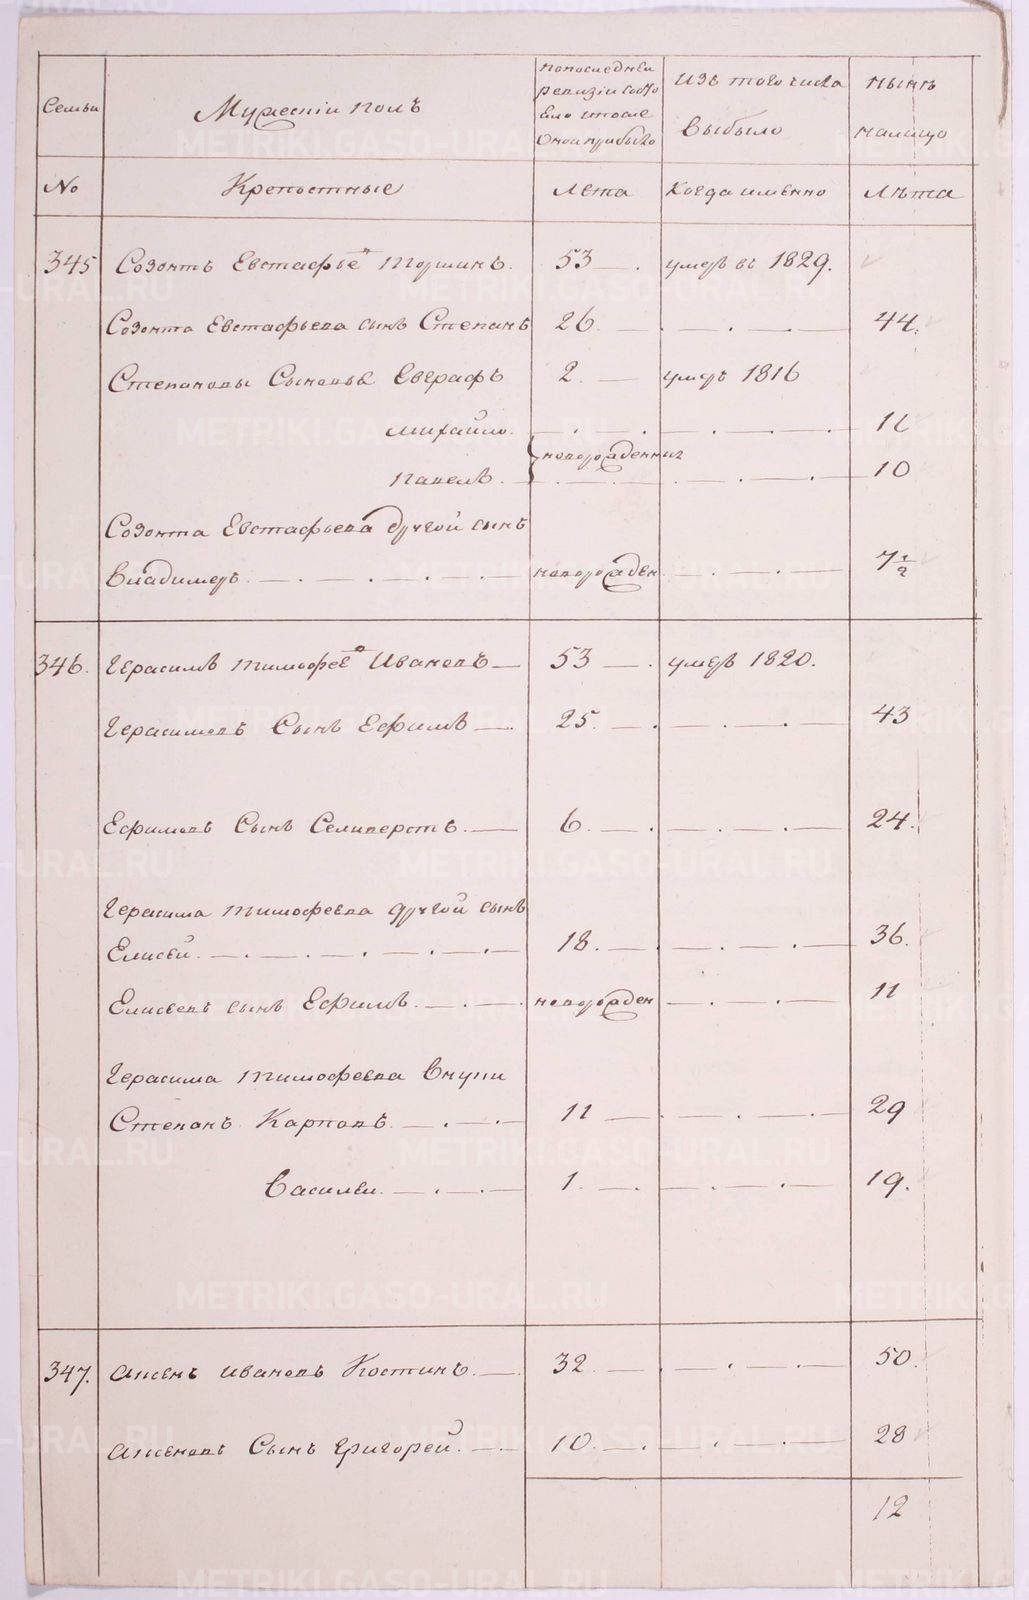 Семьи
Мужескій полъ
По последней ревизіи состояло и после оной прибыло
Изъ того числа выбыло
Нынѣ налицо
No
Крепостные
Лета
Когда именно
Лѣта
345 Созонтъ Евстафьевъ 53 умеръ въ 1829.
Созонта Евстафьева сынъ Степанъ 26. 44.
Степановы Сыновья Евграфъ 2. умеръ 1816
Михайло. 16
новорожденния
Павелъ. 10
Созонта Евстафьева другой сынъ
Владимеръ новорожден 7 1/2
346. Герасимъ Тимофеевъ Ивановъ 53 умеръ 1820.
Герасимовъ Сынъ Ефимъ 25. 43
Ефимовъ Сынъ Селиверстъ. 6. 24.
Герасима Тимофеева другой сынъ
Елисей. 18. 36.
Елисеевъ сынъ Ефимъ. новорожден 11
Герасима Тимофеева Внуки
Степанъ Карповъ. 11 29
Василеи. 1. 19.
347. Ивановъ Костинъ. 32. 50.
Сынъ Григорей. 10. 28
12
METRIKI.GASO-URAL.RU